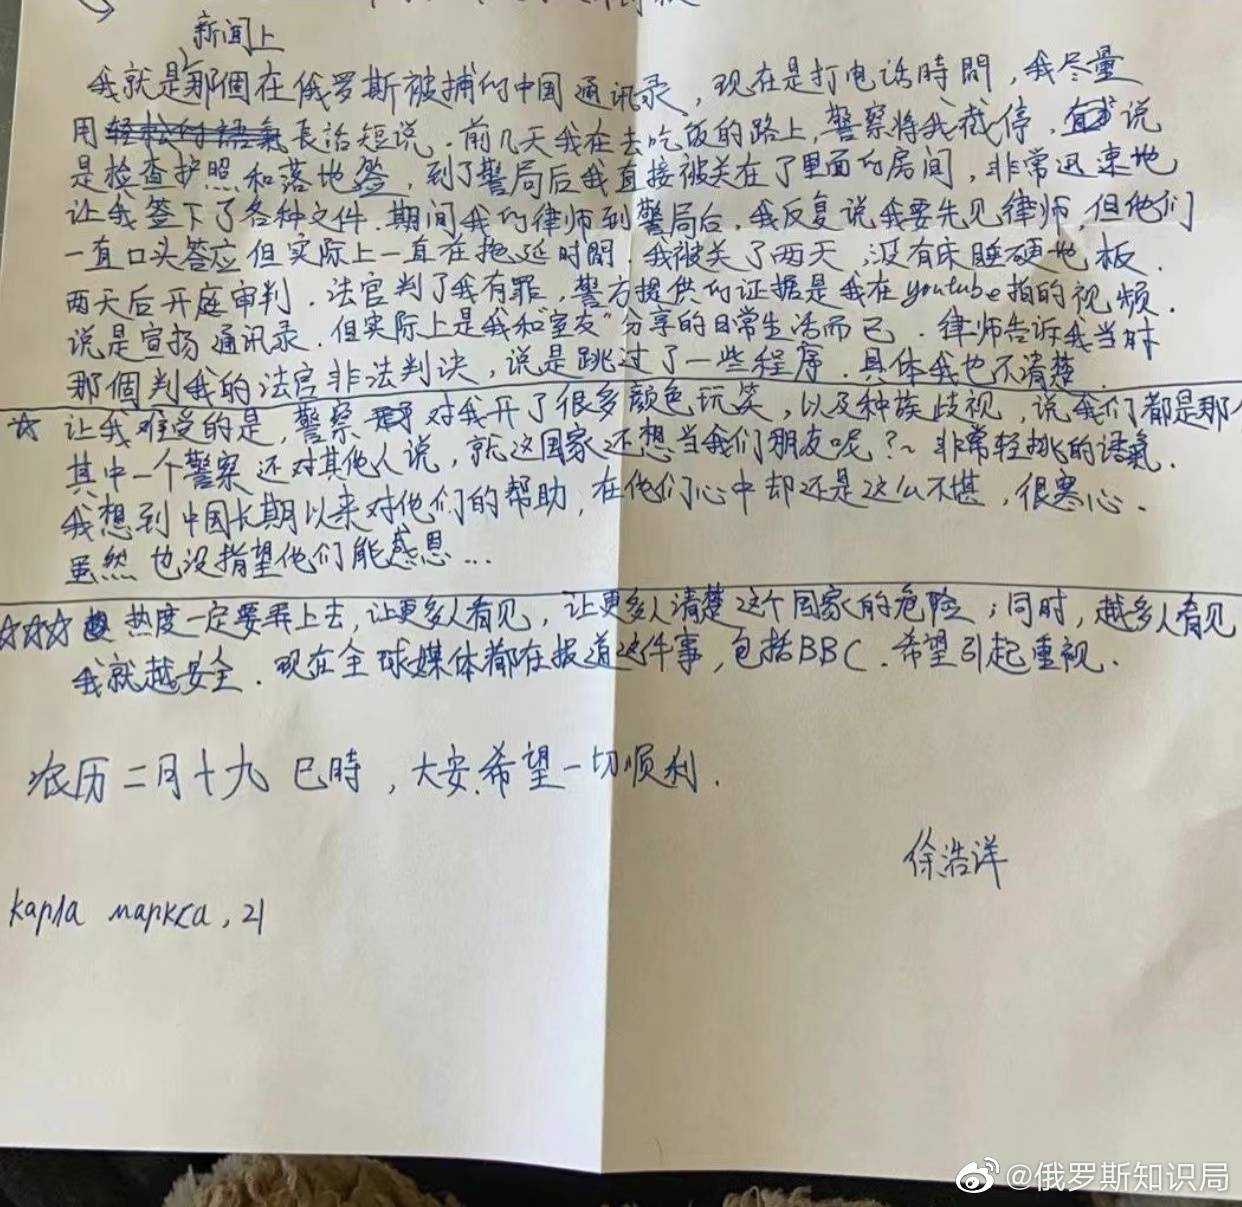 新闻上
我就是那個在俄罗斯被捕的中国通讯录，现在是打电话時間，我尽量
用轻松的語氣長話短说．前几天我在去吃饭的路上，警察将我截停，说
是检查护照和落地签，到了警局后我直接被关在了里面的房间，非常迅速地
让我签下了各种文件．期间我的律师到警局后，我反复说我要先见律师，但他们
一直口头答应但实际上一直在拖延时間．我被关了两天，没有床睡硬地板．
两天后开庭审判．法官判了我有罪，警方提供的证据是我在youtube拍的视频．
说是宣扬通讯录．但实际上是我和"室友"分享的日常生活而已．律师告诉我当时
那個判我的法官非法判决，说是跳过了一些程序．具体我也不清楚．
☆ 让我难受的是，警察对我开了很多颜色玩笑，以及种族歧视，说我们都是那个
其中一个警察还对其他人说，就这国家还想当我们朋友呢？~ 非常轻挑的语氣．
我想到中国长期以来对他们的帮助，在他们心中却还是这么不堪，很寒心．
虽然也没指望他们能感恩...
☆☆☆ 热度一定要弄上去，让更多人看见，让更多人清楚这个国家的危险；同时，越多人看见
我就越安全．现在全球媒体都在报道这件事，包括BBC．希望引起重视．
农历二月十九 巳時，大安．希望一切顺利．
徐浩洋
Карла маркса，21
@俄罗斯知识局